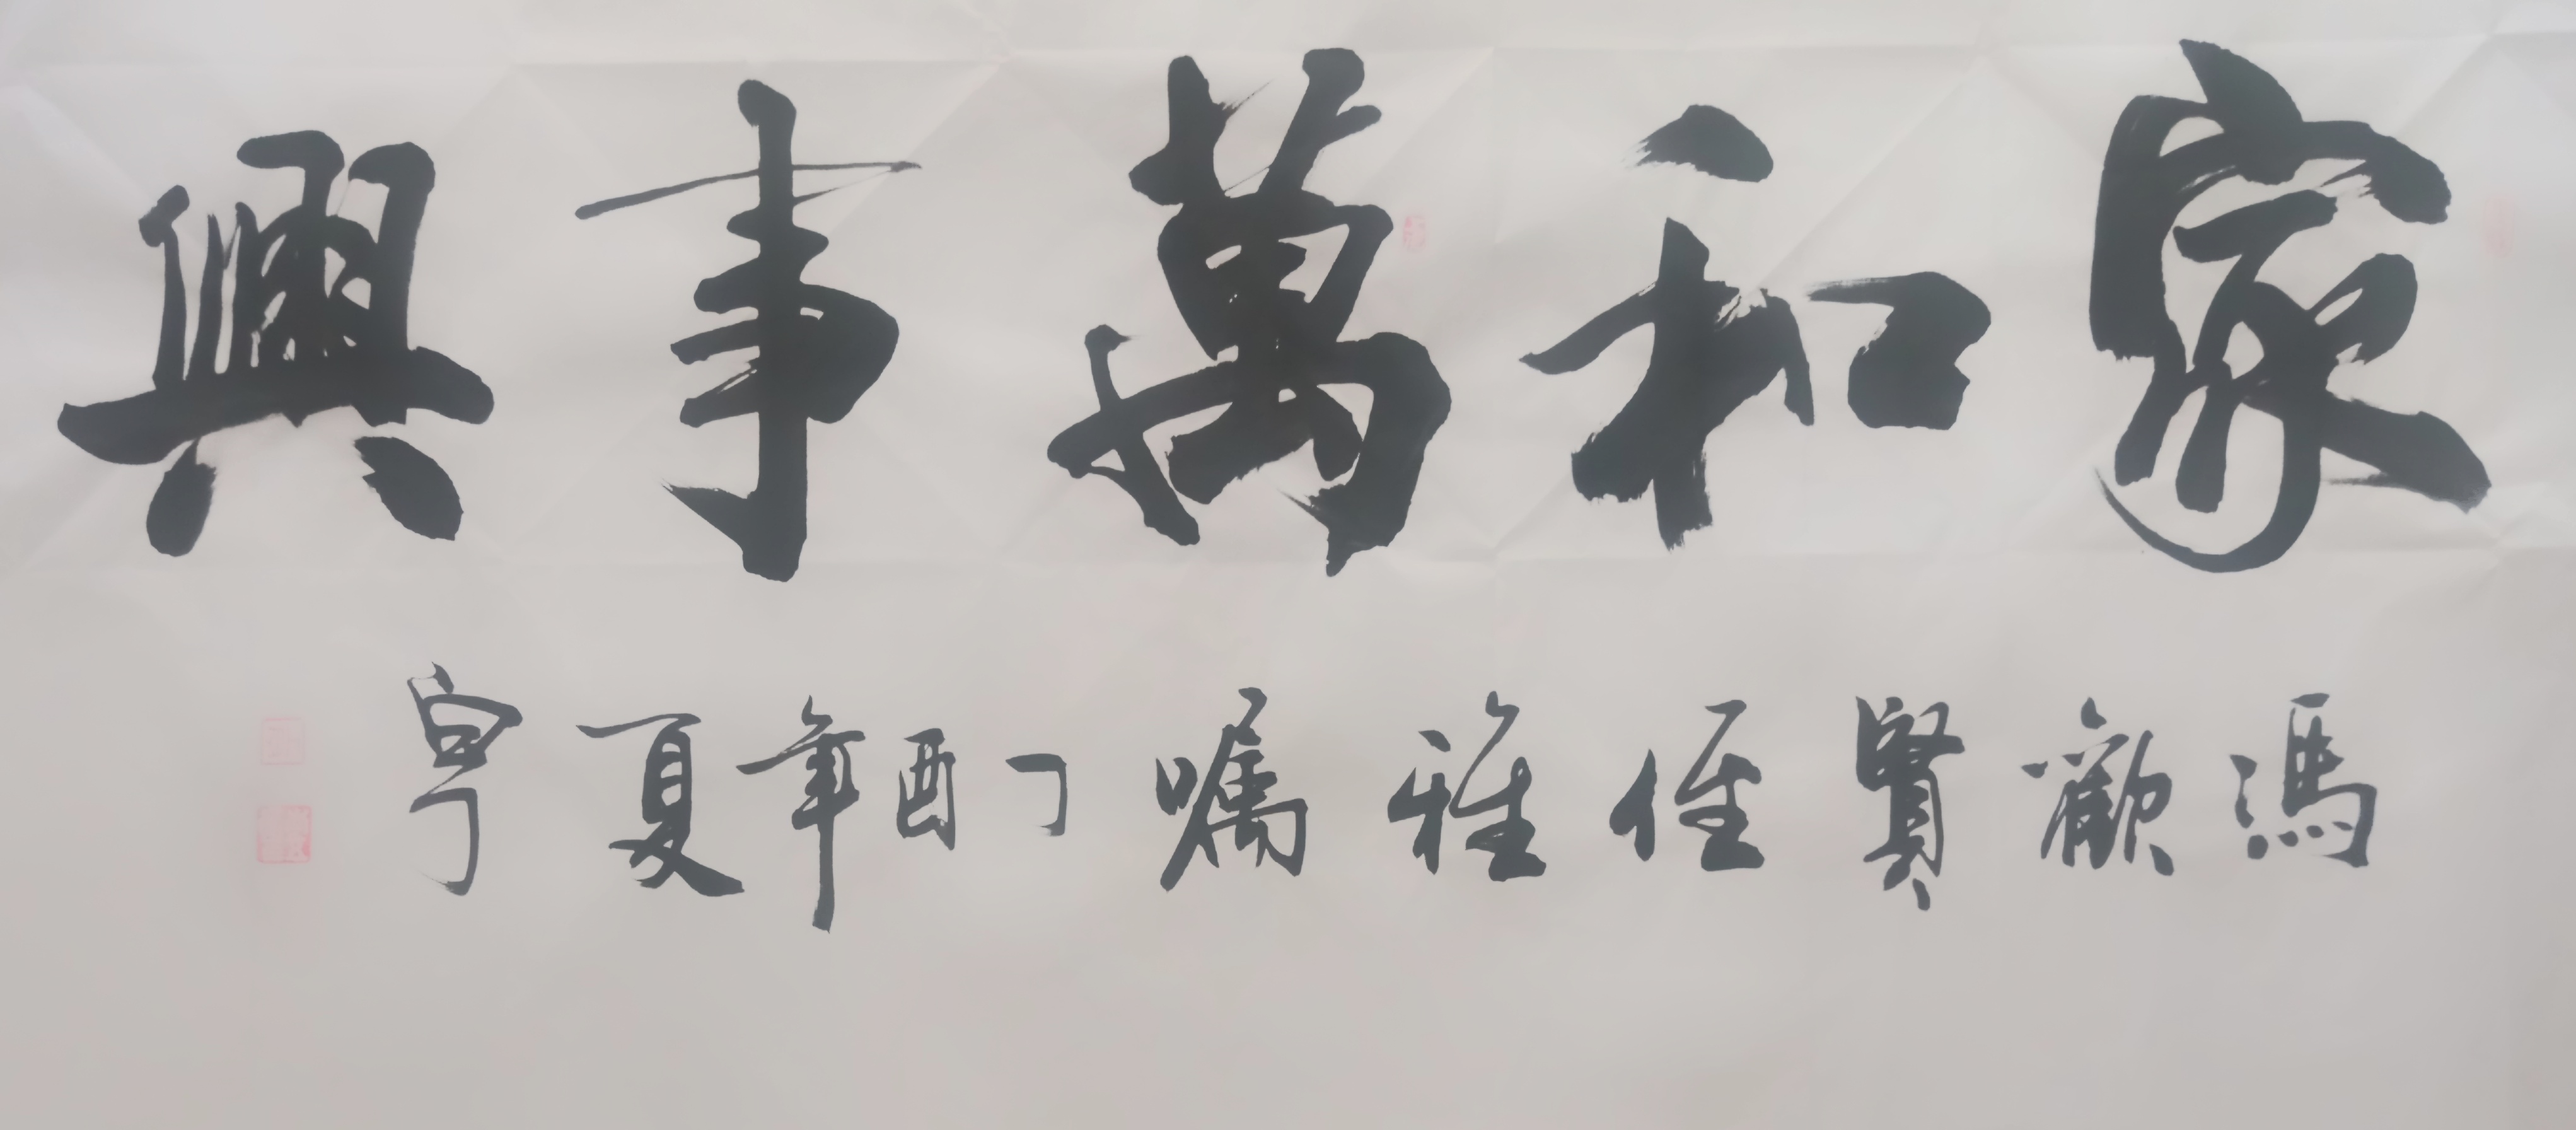 家和萬事興
馮歡賢侄雅嘱丁酉年夏